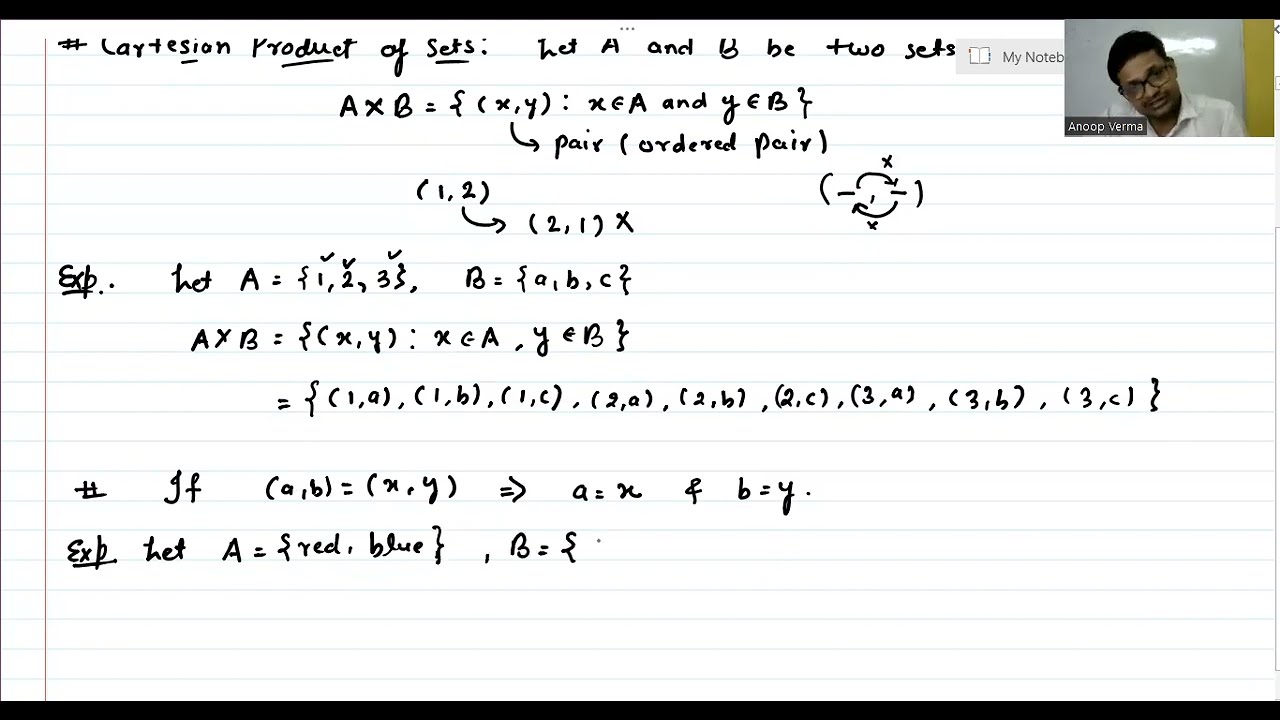 # Cartesian Product of Sets: Let A and B be two sets
My Noteb
A × B = { (x,y) : x ∈ A and y ∈ B }
Anoop Verma
↳ pair (ordered pair)
x
(1,2)
(— , —)
↳ (2,1) X
x
Exp. Let A = {1, 2, 3}, B = {a, b, c}
A × B = {(x,y) : x ∈ A , y ∈ B }
= { (1,a), (1,b), (1,c), (2,a), (2,b), (2,c), (3,a), (3,b), (3,c) }
# If (a,b) = (x,y) ⇒ a = x & b = y.
Exp. Let A = {red, blue} , B = {